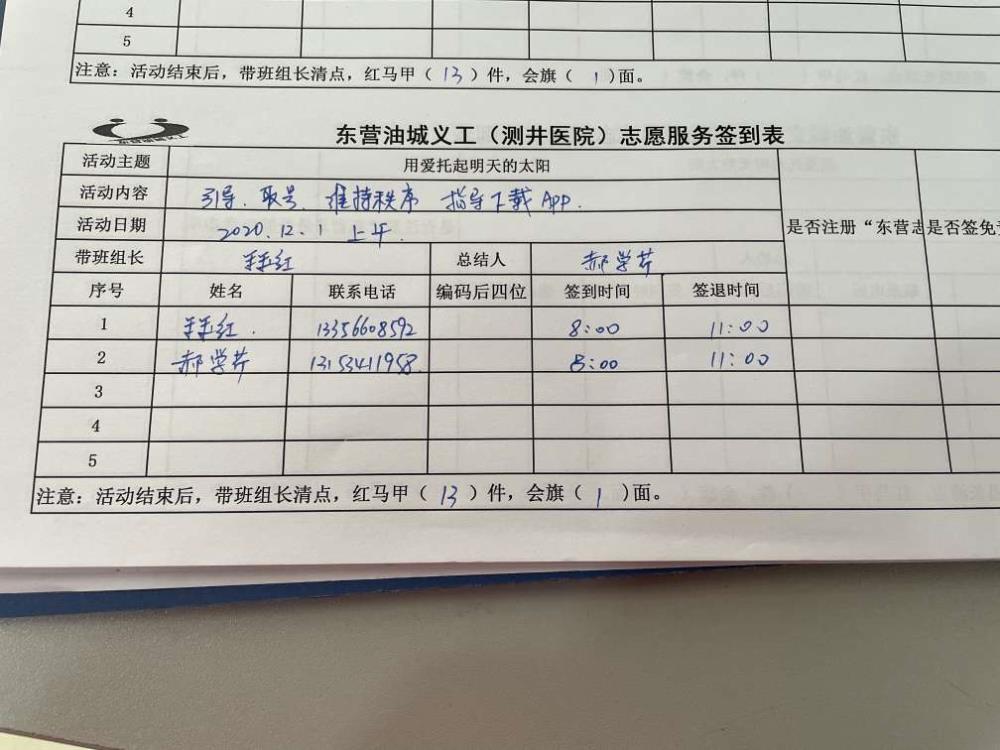 4
5
注意：活动结束后，带班组长清点，红马甲（ 13 ）件，会旗（ 1 ）面。
东营油城义工（测井医院）志愿服务签到表
活动主题 用爱托起明天的太阳
活动内容 引导、取号、维持秩序 指导下载App.
活动日期 2020.12.1 上午. 是否注册“东营志 是否签免责
带班组长 红 总结人 郝学芹
序号 姓名 联系电话 编码后四位 签到时间 签退时间
1 红. 13356608592 8:00 11:00
2 郝学芹 13153411958 8:00 11:00
3
4
5
注意：活动结束后，带班组长清点，红马甲（ 13 ）件，会旗（ 1 ）面。